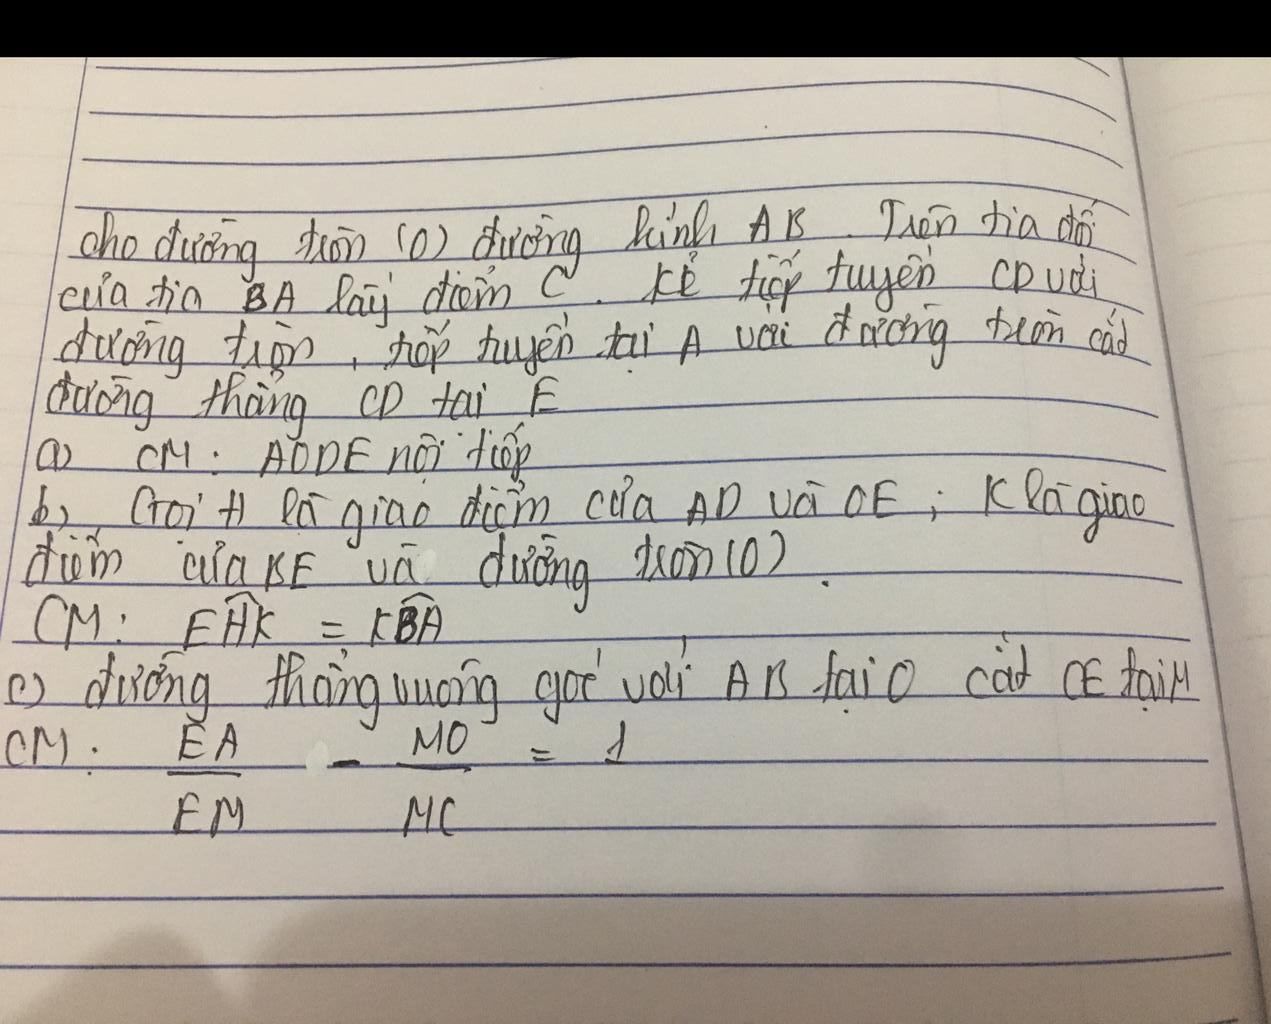 cho đường tròn (O) đường kính AB. Trên tia đối
của tia BA lấy điểm C. Kẻ tiếp tuyến CD với
đường tròn, tiếp tuyến tại A với đường tròn cắt
đường thẳng CD tại E
a) CM: AODE nội tiếp
b), Gọi H là giao điểm của AD và OE; K là giao
điểm của BE và đường tròn (O).
CM: EHK = KBA
c) đường thẳng vuông góc với AB tại O cắt CE tại M
CM: EA/EM - MO/MC = 1